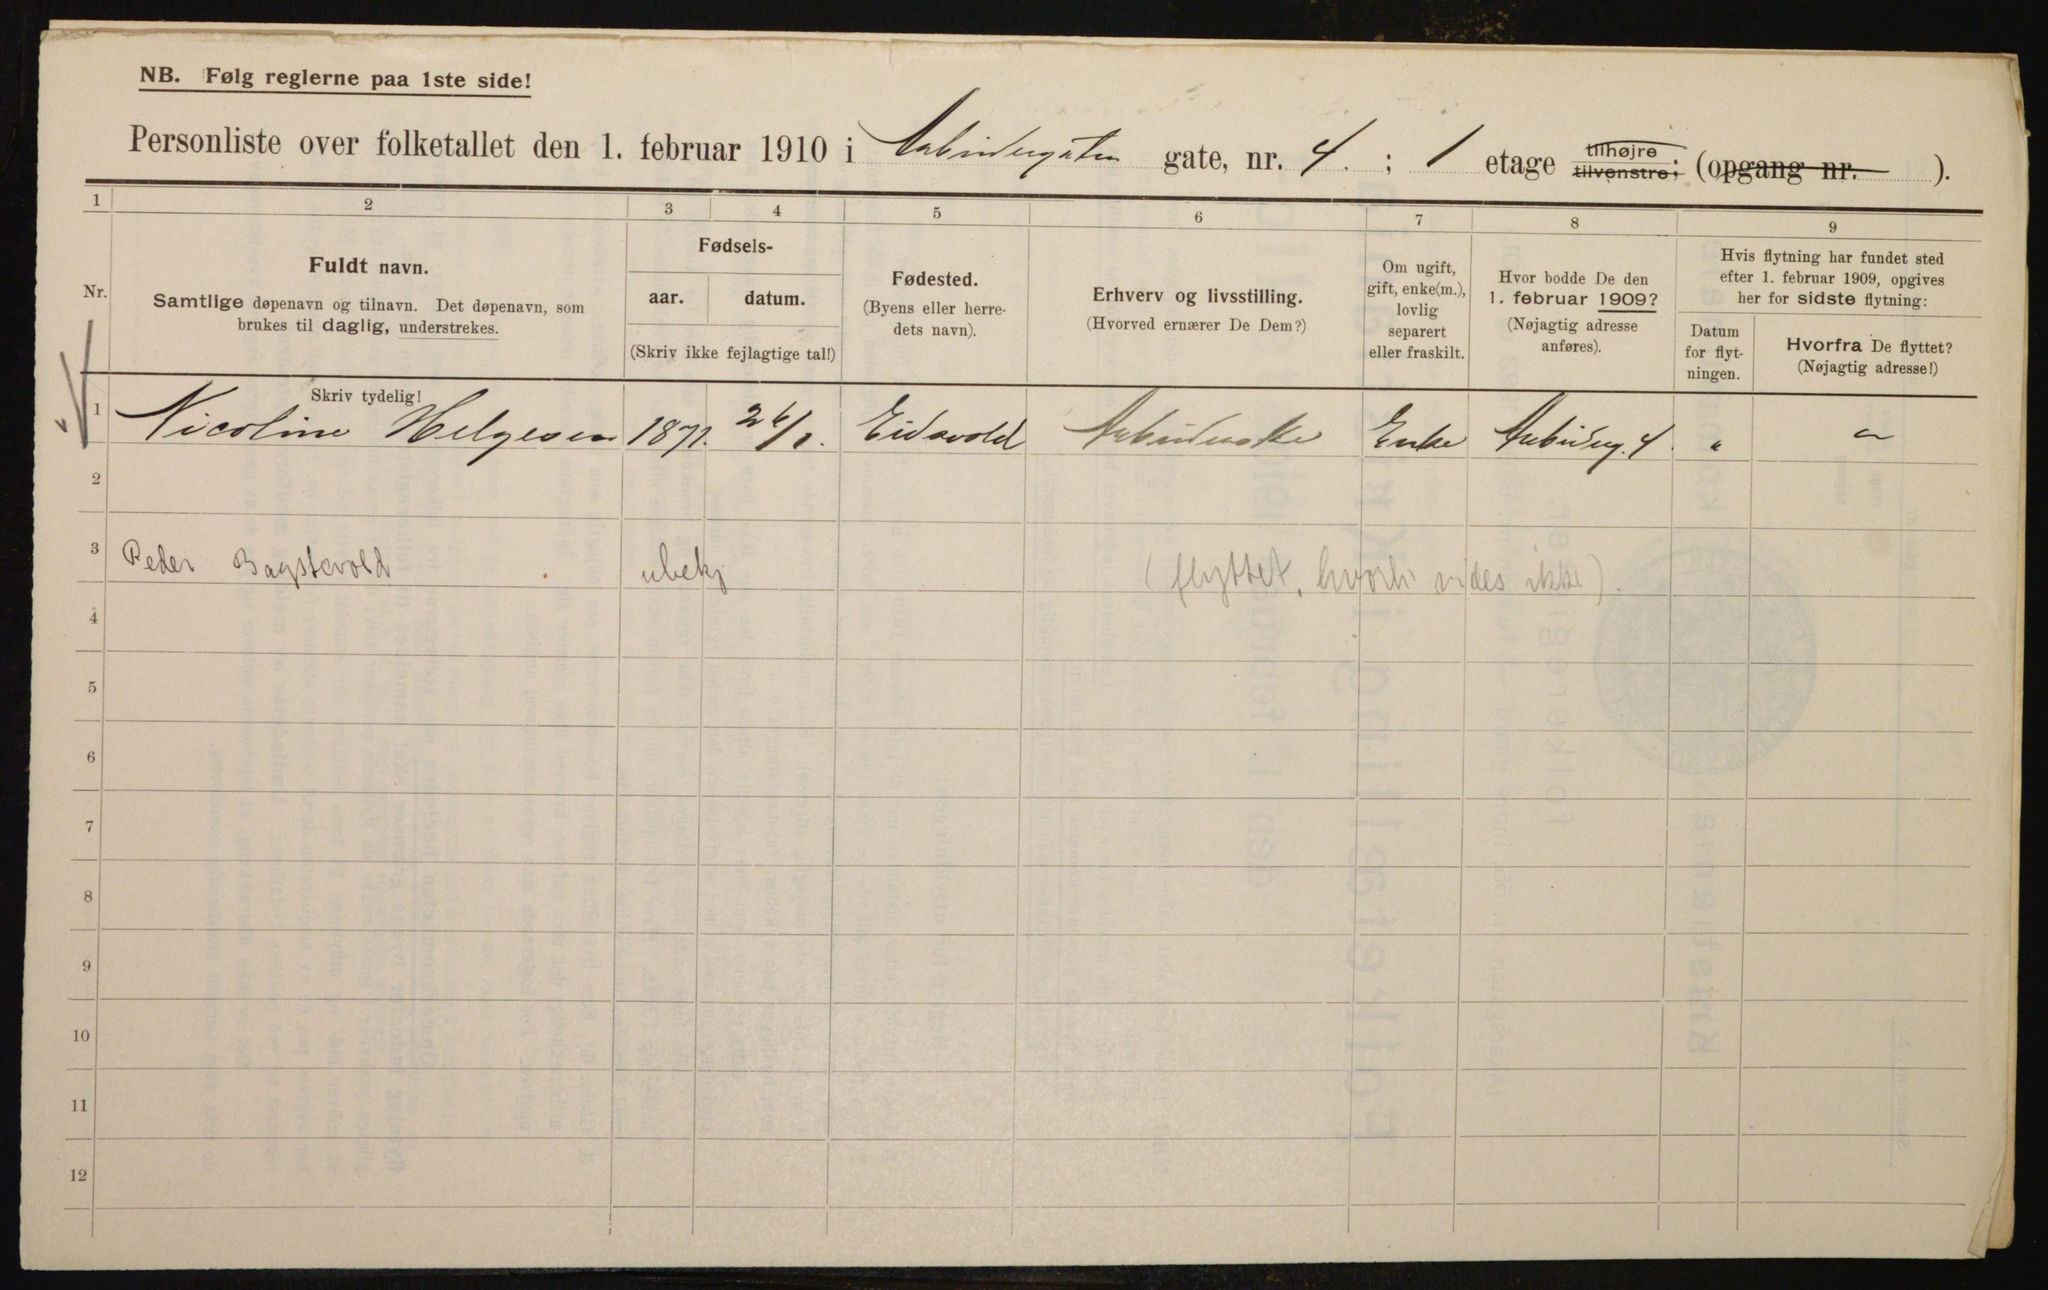 NB. Følg reglerne paa 1ste side!
Personliste over folketallet den 1. februar 1910 i Arbeidergaten gate, nr. 4. ; 1 etage tilhøjre tilvenstre; (opgang nr. ).
1 2 3 4 5 6 7 8 9
Nr.
Fuldt navn.
Samtlige døpenavn og tilnavn. Det døpenavn, som
brukes til daglig, understrekes.
Skriv tydelig!
Fødsels-
aar. datum.
(Skriv ikke fejlagtige tal!)
Fødested.
(Byens eller herre-
dets navn).
Erhverv og livsstilling.
(Hvorved ernærer De Dem?)
Om ugift,
gift, enke(m.),
lovlig
separert
eller fraskilt.
Hvor bodde De den
1. februar 1909?
(Nøjagtig adresse
anføres).
Hvis flytning har fundet sted
efter 1. februar 1909, opgives
her for sidste flytning:
Datum
for flyt-
ningen.
Hvorfra De flyttet?
(Nøjagtig adresse!)
1 Nicoline Helgesen 1871. 26/1. Eidsvold Arbeiderske Enke Arbeiderg. 4. " "
2
3 Peder ubekj (flyttet, hvorhen vides ikke).
4
5
6
7
8
9
10
11
12